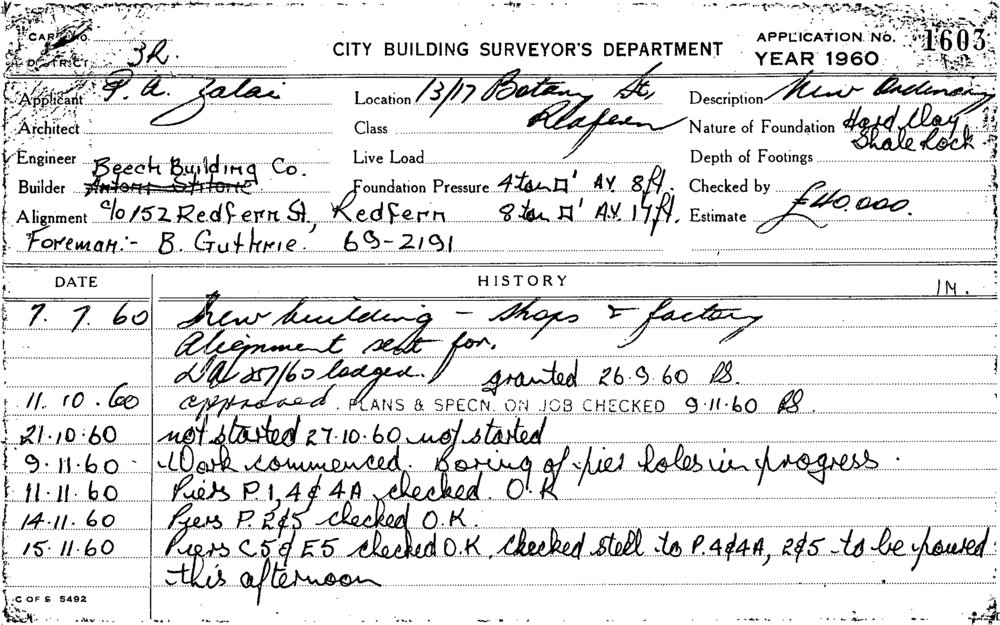 CARD No.
DISTRICT 3R.
CITY BUILDING SURVEYOR'S DEPARTMENT
APPLICATION No. 1603
YEAR 1960
Applicant P. A. Zalai
Location 13/17 Botany St, Redfern
Description New Ordinary
Architect
Class
Nature of Foundation Hard Clay Shale Rock
Engineer
Live Load
Depth of Footings
Builder Beech Building Co.
Foundation Pressure 4 ton □' AV. 8 ft.
Checked by
Alignment c/o 152 Redfern St, Redfern 8 ton □' AV. 17 ft.
Estimate £40.000.
Foreman:- B. Guthrie. 69-2191
DATE HISTORY 1M.
7. 7. 60 New building - shops & factory
Alignment sent for.
DA 257/60 lodged. granted 26.9.60 RS.
11.10.60 approved. PLANS & SPECN. ON JOB CHECKED 9.11.60 RS.
21.10.60 not started 27.10.60 not started
9.11.60 Work commenced. Boring of pier holes in progress.
11.11.60 Piers P.1, 4 & 4A checked. O.K
14.11.60 Piers P. 2 & 5 checked O.K.
15.11.60 Piers C.5 & E5 checked O.K. checked stell to P.4 & 4A, 2 & 5 to be poured
this afternoon
C OF S 5492